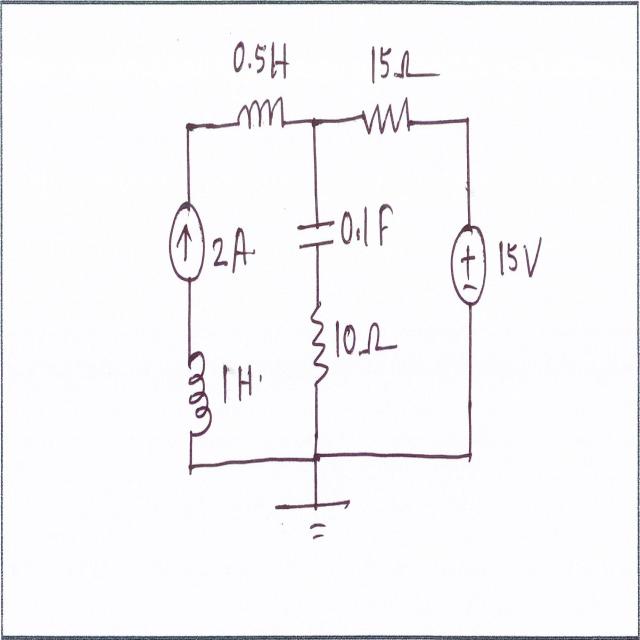 0.5H
15Ω
2A
0.1F
+
15V
10Ω
1H